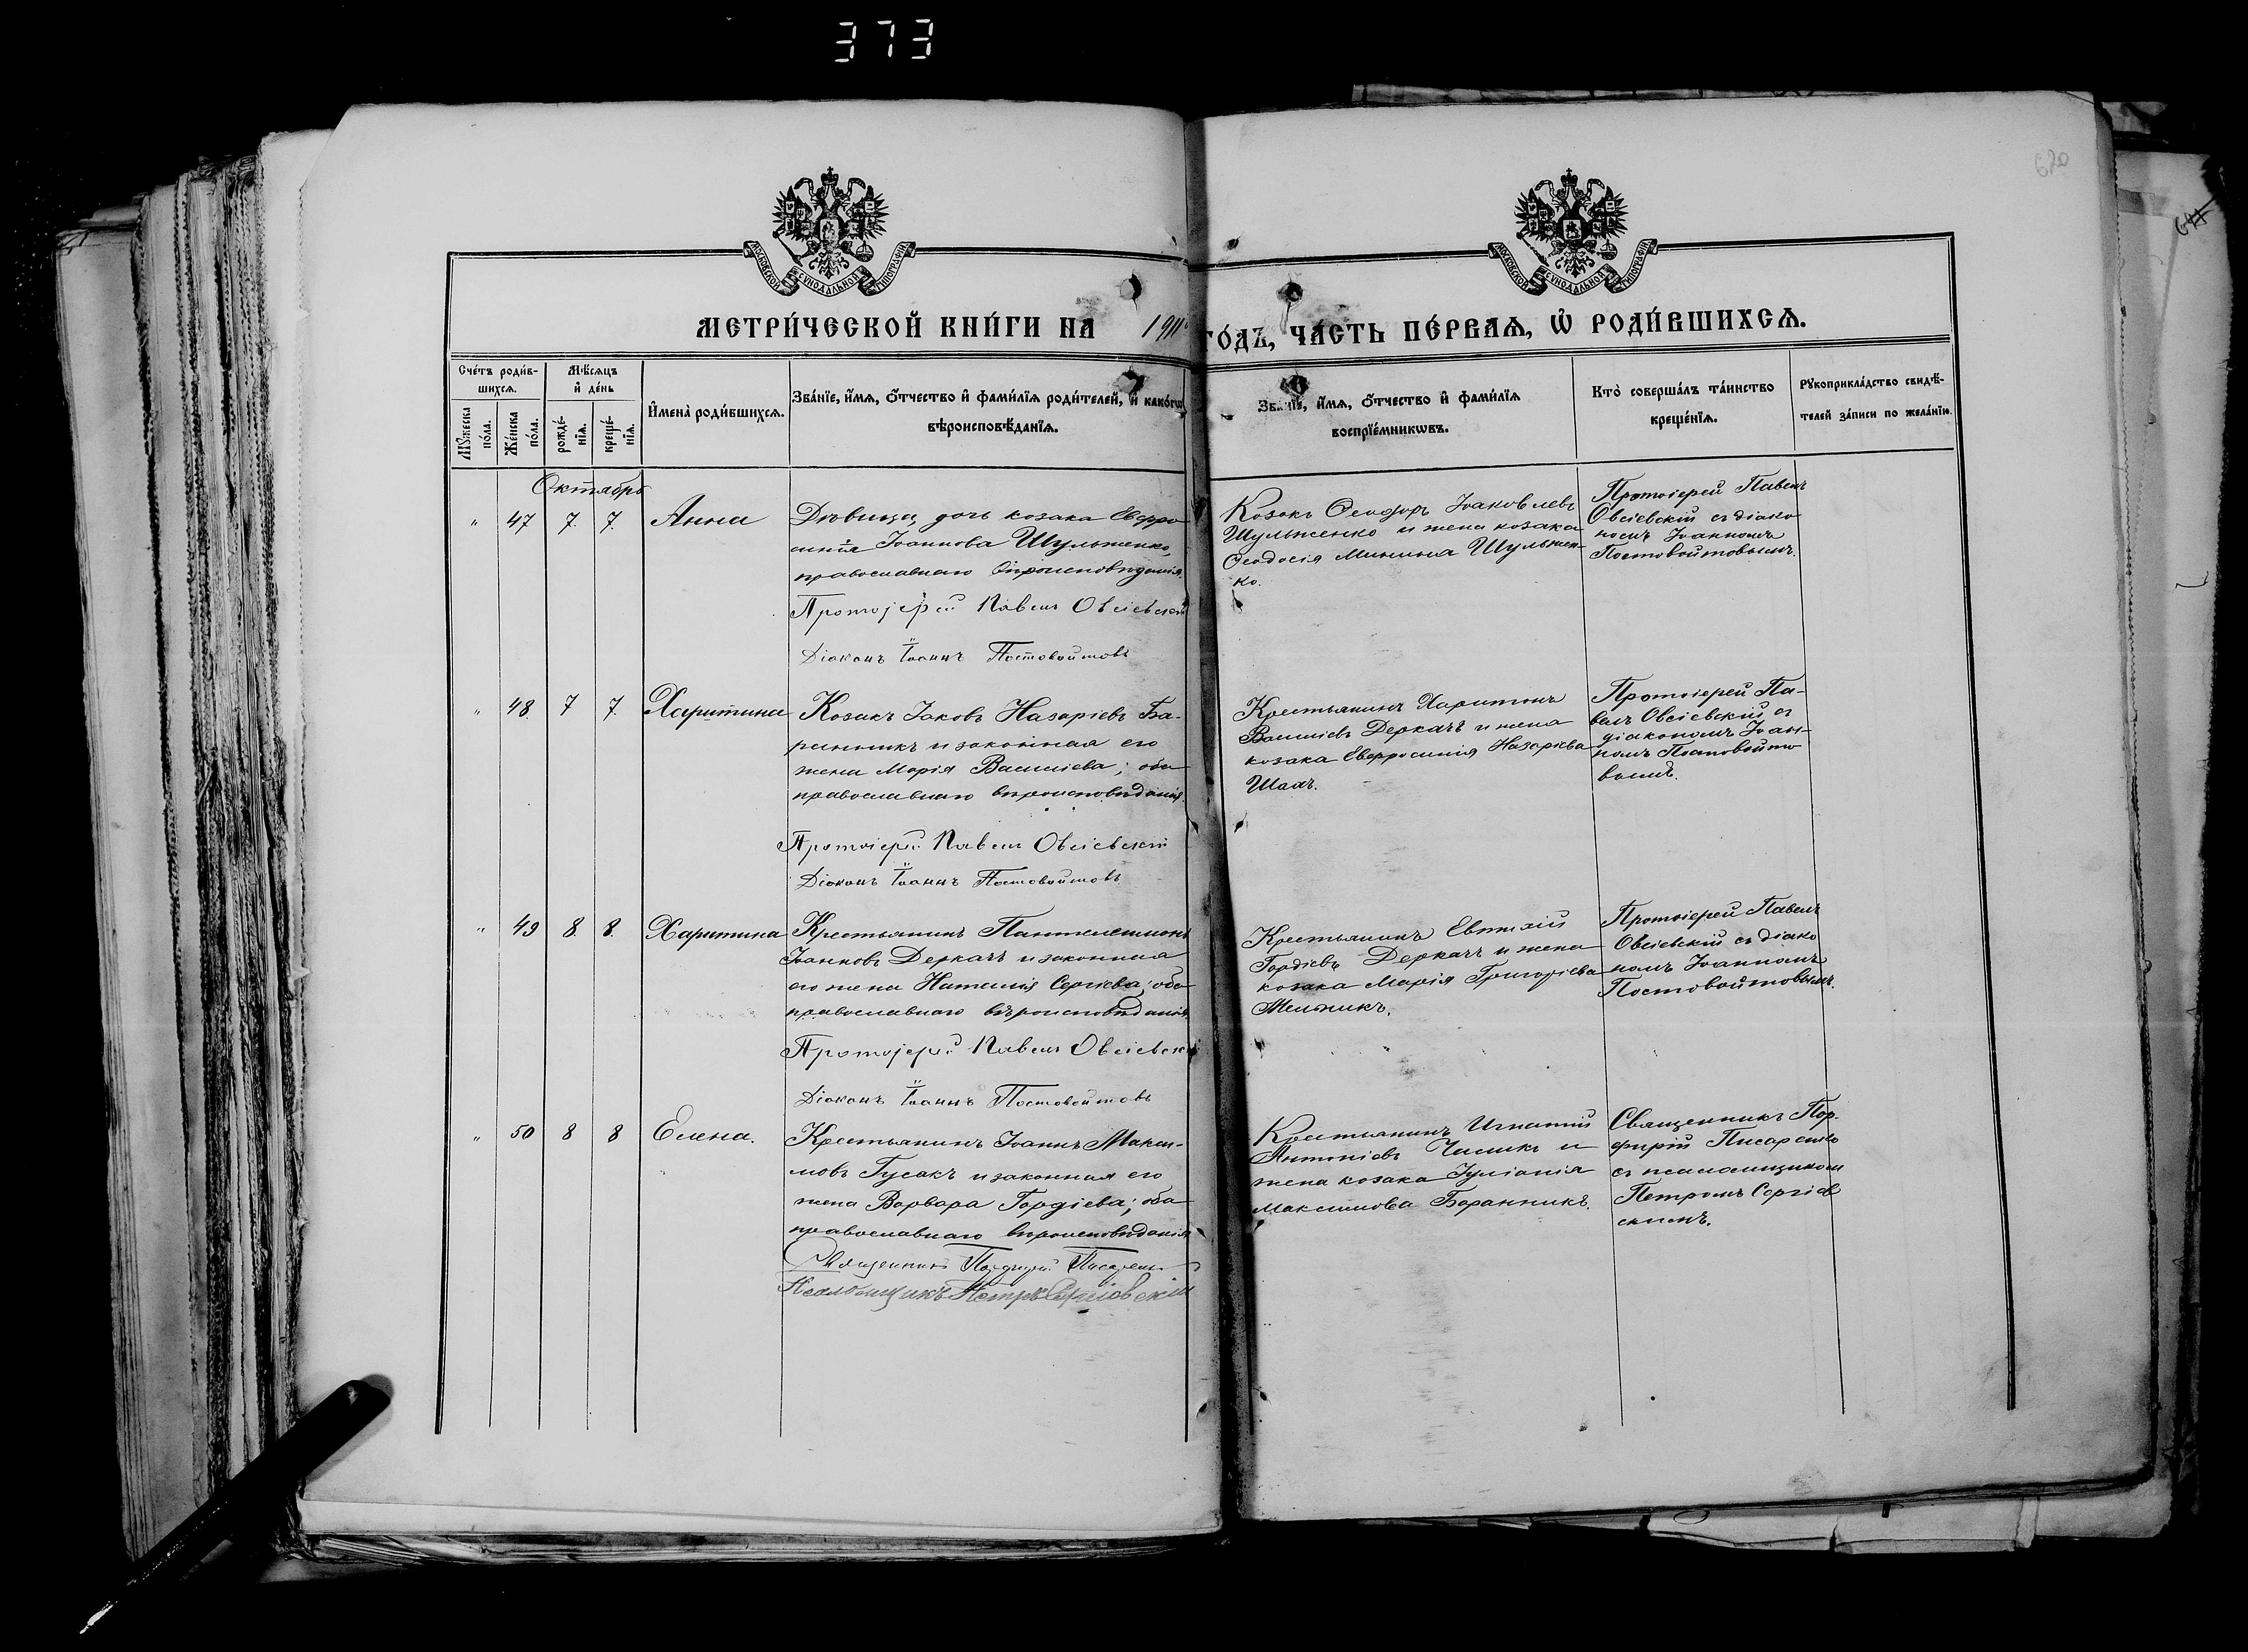 373
620
МОСКОВСКОЙ СУНОДАЛЬНОЙ ТИПОГРАФІИ
МОСКОВСКОЙ СУНОДАЛЬНОЙ ТИПОГРАФІИ
МЕТРИ́ЧЕСКОЙ КНИ́ГИ НА 1911 ГО́ДЪ, ЧА́СТЬ ПЕ́РВАѦ, Ѡ҆ РОДИ́ВШИХСѦ.
Сче́тъ роди́в-
шихсѧ.
Мꙋ́жеска
по́ла.
Же́нска
по́ла.
Мѣ́сѧцъ
и҆ де́нь
рожде́-
нїѧ.
креще́-
нїѧ.
И҆мена̀ роди́вшихсѧ.
Зва́нїе, и҆́мѧ, ѻ҆́тчество и҆ фами́лїѧ роди́телей, и҆ како́гѡ
вѣроисповѣ́данїѧ.
Зва́нїе, и҆́мѧ, ѻ҆́тчество и҆ фами́лїѧ
воспрїе́мникѡвъ.
Кто̀ соверша́лъ та́инство
креще́нїѧ.
Рꙋкоприкла́дство свидѣ́-
телей за́писи по жела́нїю.
Октябрь
" 47 7. 7. Анна
Дѣвица, дочь козака Евфро-
синія Іоаннова Шульженко,
православнаго вѣроисповѣданія.
Протоіерей Павелъ Овсіевскій
Діаконъ Іоаннъ Постовойтовъ
Козакъ Ѳеодоръ Іаковлевъ
Шульженко и жена козака
Ѳеодосія Минина Шульжен-
ко.
Протоіерей Павелъ
Овсіевскій съ діако-
номъ Іоанномъ
Постовойтовымъ.
" 48. 7 7. Харитина
Козакъ Іаковъ Назаріевъ Ба-
ранникъ и законная его
жена Марія Василіева; оба
православнаго вѣроисповѣданія.
Протоіерей Павелъ Овсіевскій
Діаконъ Іоаннъ Постовойтовъ
Крестьянинъ Харитонъ
Василіевъ Деркачъ и жена
козака Евфросинія Назаріева
Шаах.
Протоіерей Па-
велъ Овсіевскій съ
діакономъ Іоан-
номъ Постовойто-
вымъ.
" 49 8. 8. Харитина
Крестьянинъ Пантелеимонъ
Іоанновъ Деркачъ и законная
его жена Наталія Сергіева; оба
православнаго вѣроисповѣданія.
Протоіерей Павелъ Овсіевскій
Діаконъ Іоаннъ Постовойтовъ
Крестьянинъ Евтихій
Гордіевъ Деркачъ и жена
козака Марія Григоріева
Мельникъ.
Протоіерей Павелъ
Овсіевскій съ діако-
номъ Іоанномъ
Постовойтовымъ.
" 50 8 8 Елена.
Крестьянинъ Іоаннъ Макси-
мовъ Гусакъ и законная его
жена Варвара Гордіева; оба
православнаго вѣроисповѣданія
Священникъ Порфирій Писаренко
Псаломщикъ Петръ Сергіевскій
Крестьянинъ Игнатій
Антоніевъ Чиликъ и
жена козака Іуліанія
Максимова Баранникъ.
Священникъ Пор-
фирій Писаренко
съ псаломщикомъ
Петромъ Сергіев-
скимъ.